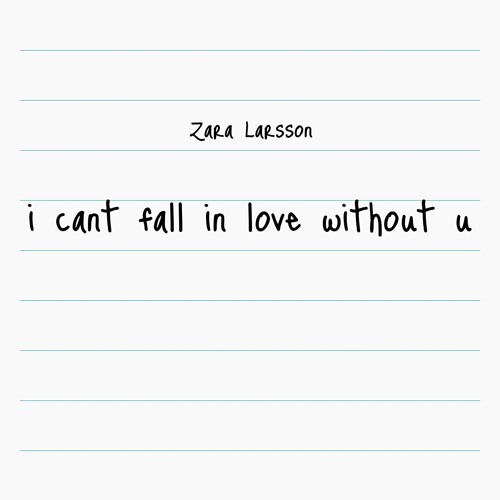 Zara Larsson
i cant fall in love without u